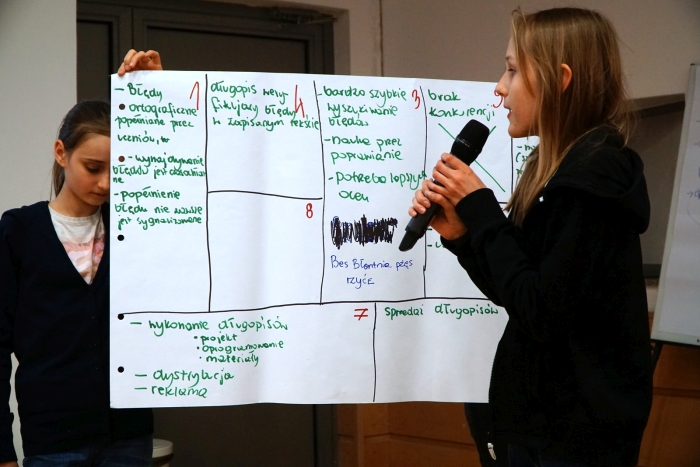 - Błędy
1
ortograficzne
popełniane przez
uczniów,
- wynajdywanie
błędów jest
- popełnienie
błędu nie
jest sygnalizowane
długopis wery-
4
fikujący błędy
w zapisanym tekście
8
- bardzo szybkie
3
wyszukiwanie
błędów
- nauka przez
poprawianie
- potrzeba lepszych
ocen
Bez Błędnie
życie
brak
9
konkurencji
7
- wykonanie długopisów
• projekt
• oprogramowanie
• materiały
- dystrybucja
- reklama
sprzedaż długopisów